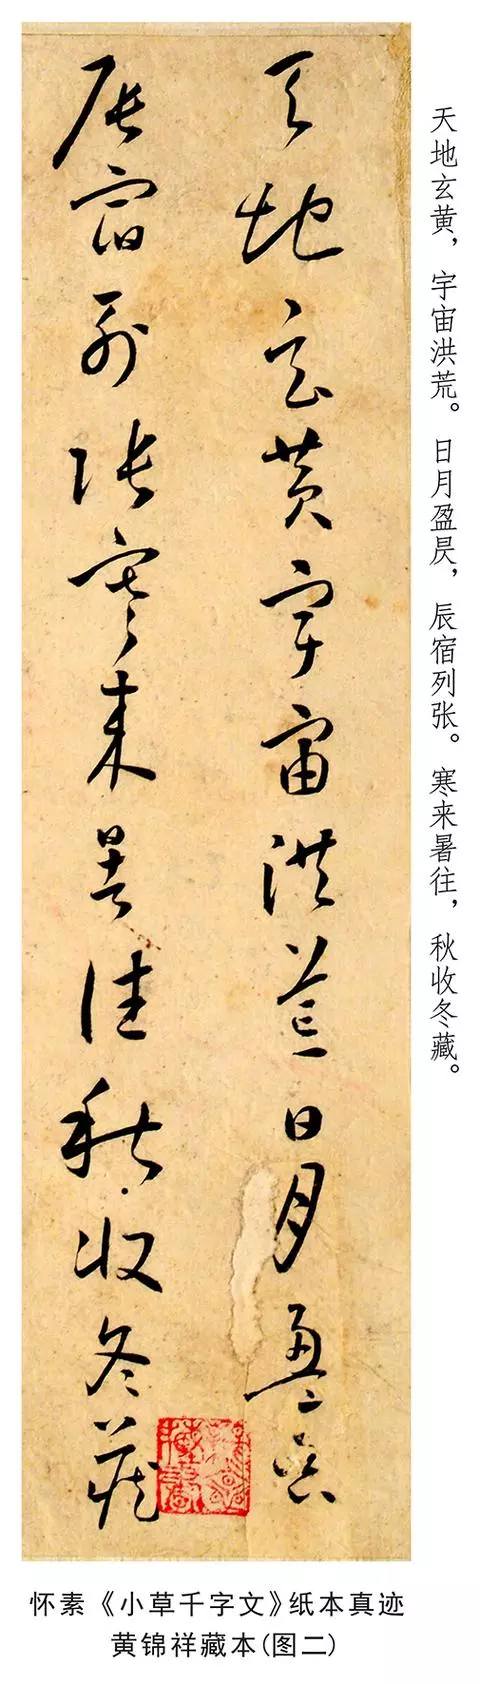 天地玄黄，宇宙洪荒。日月盈昃，辰宿列张。寒来暑往，秋收冬藏。
天地玄黄宇宙洪荒日月盈昃
辰宿列张寒来暑往秋收冬藏
怀素《小草千字文》纸本真迹
黄锦祥藏本(图二)